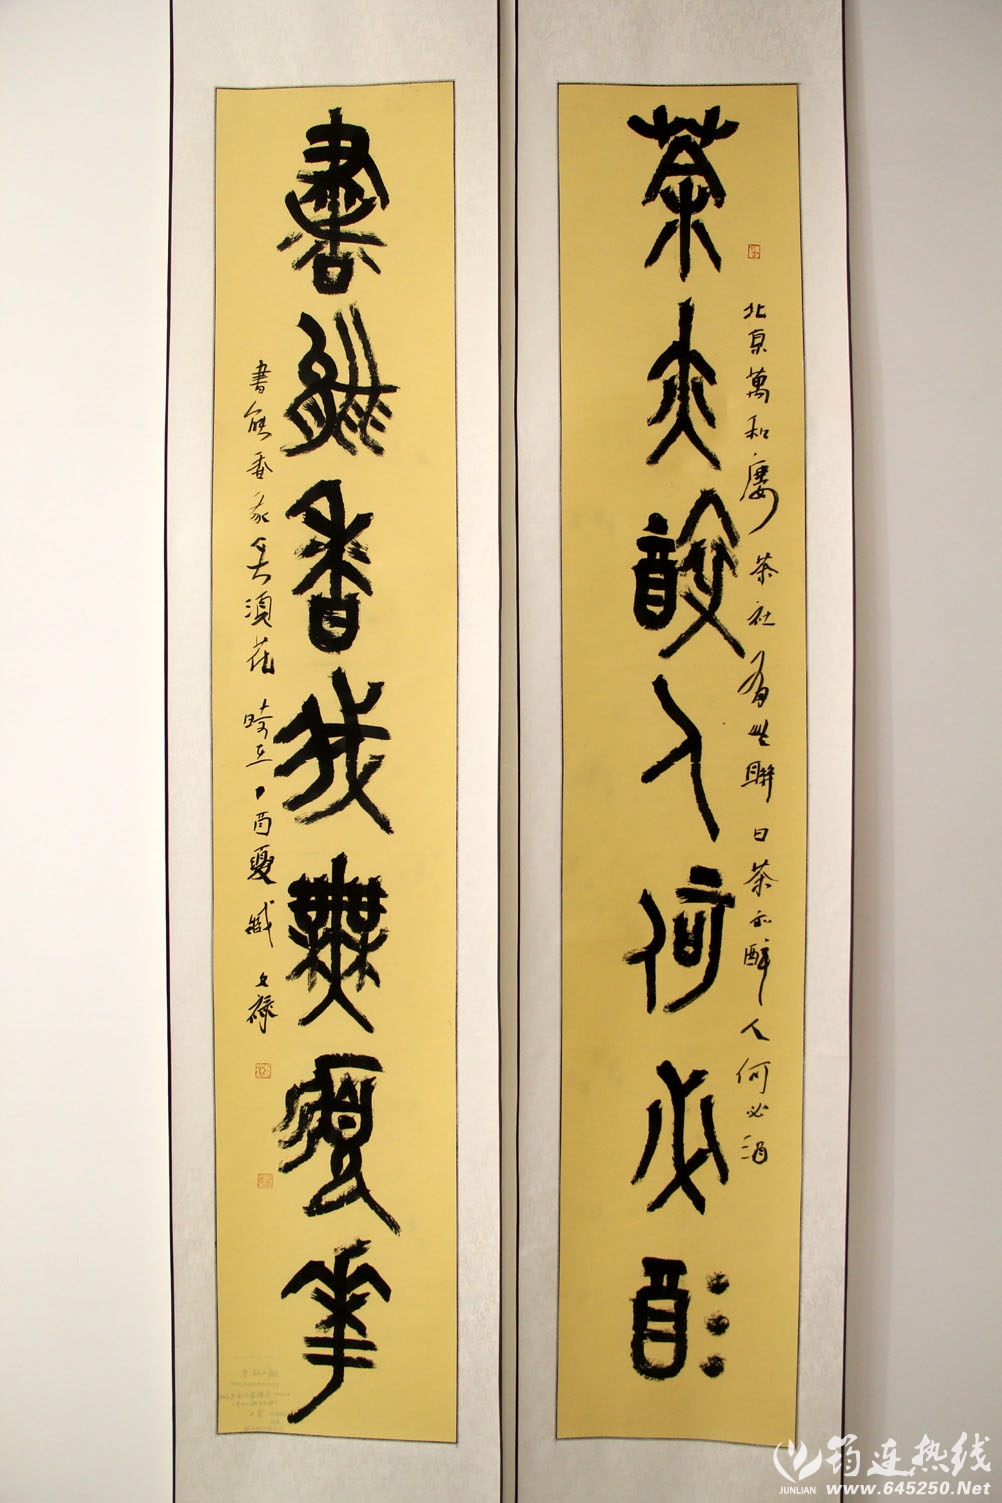 茶亦醉人何必酒
北京萬和廔茶社有此聯曰茶亦醉人何必酒
書能香我無須華
書能香我无須花 時在丁酉夏臧文禄
筠连热线
JUNLIAN www.645250.Net